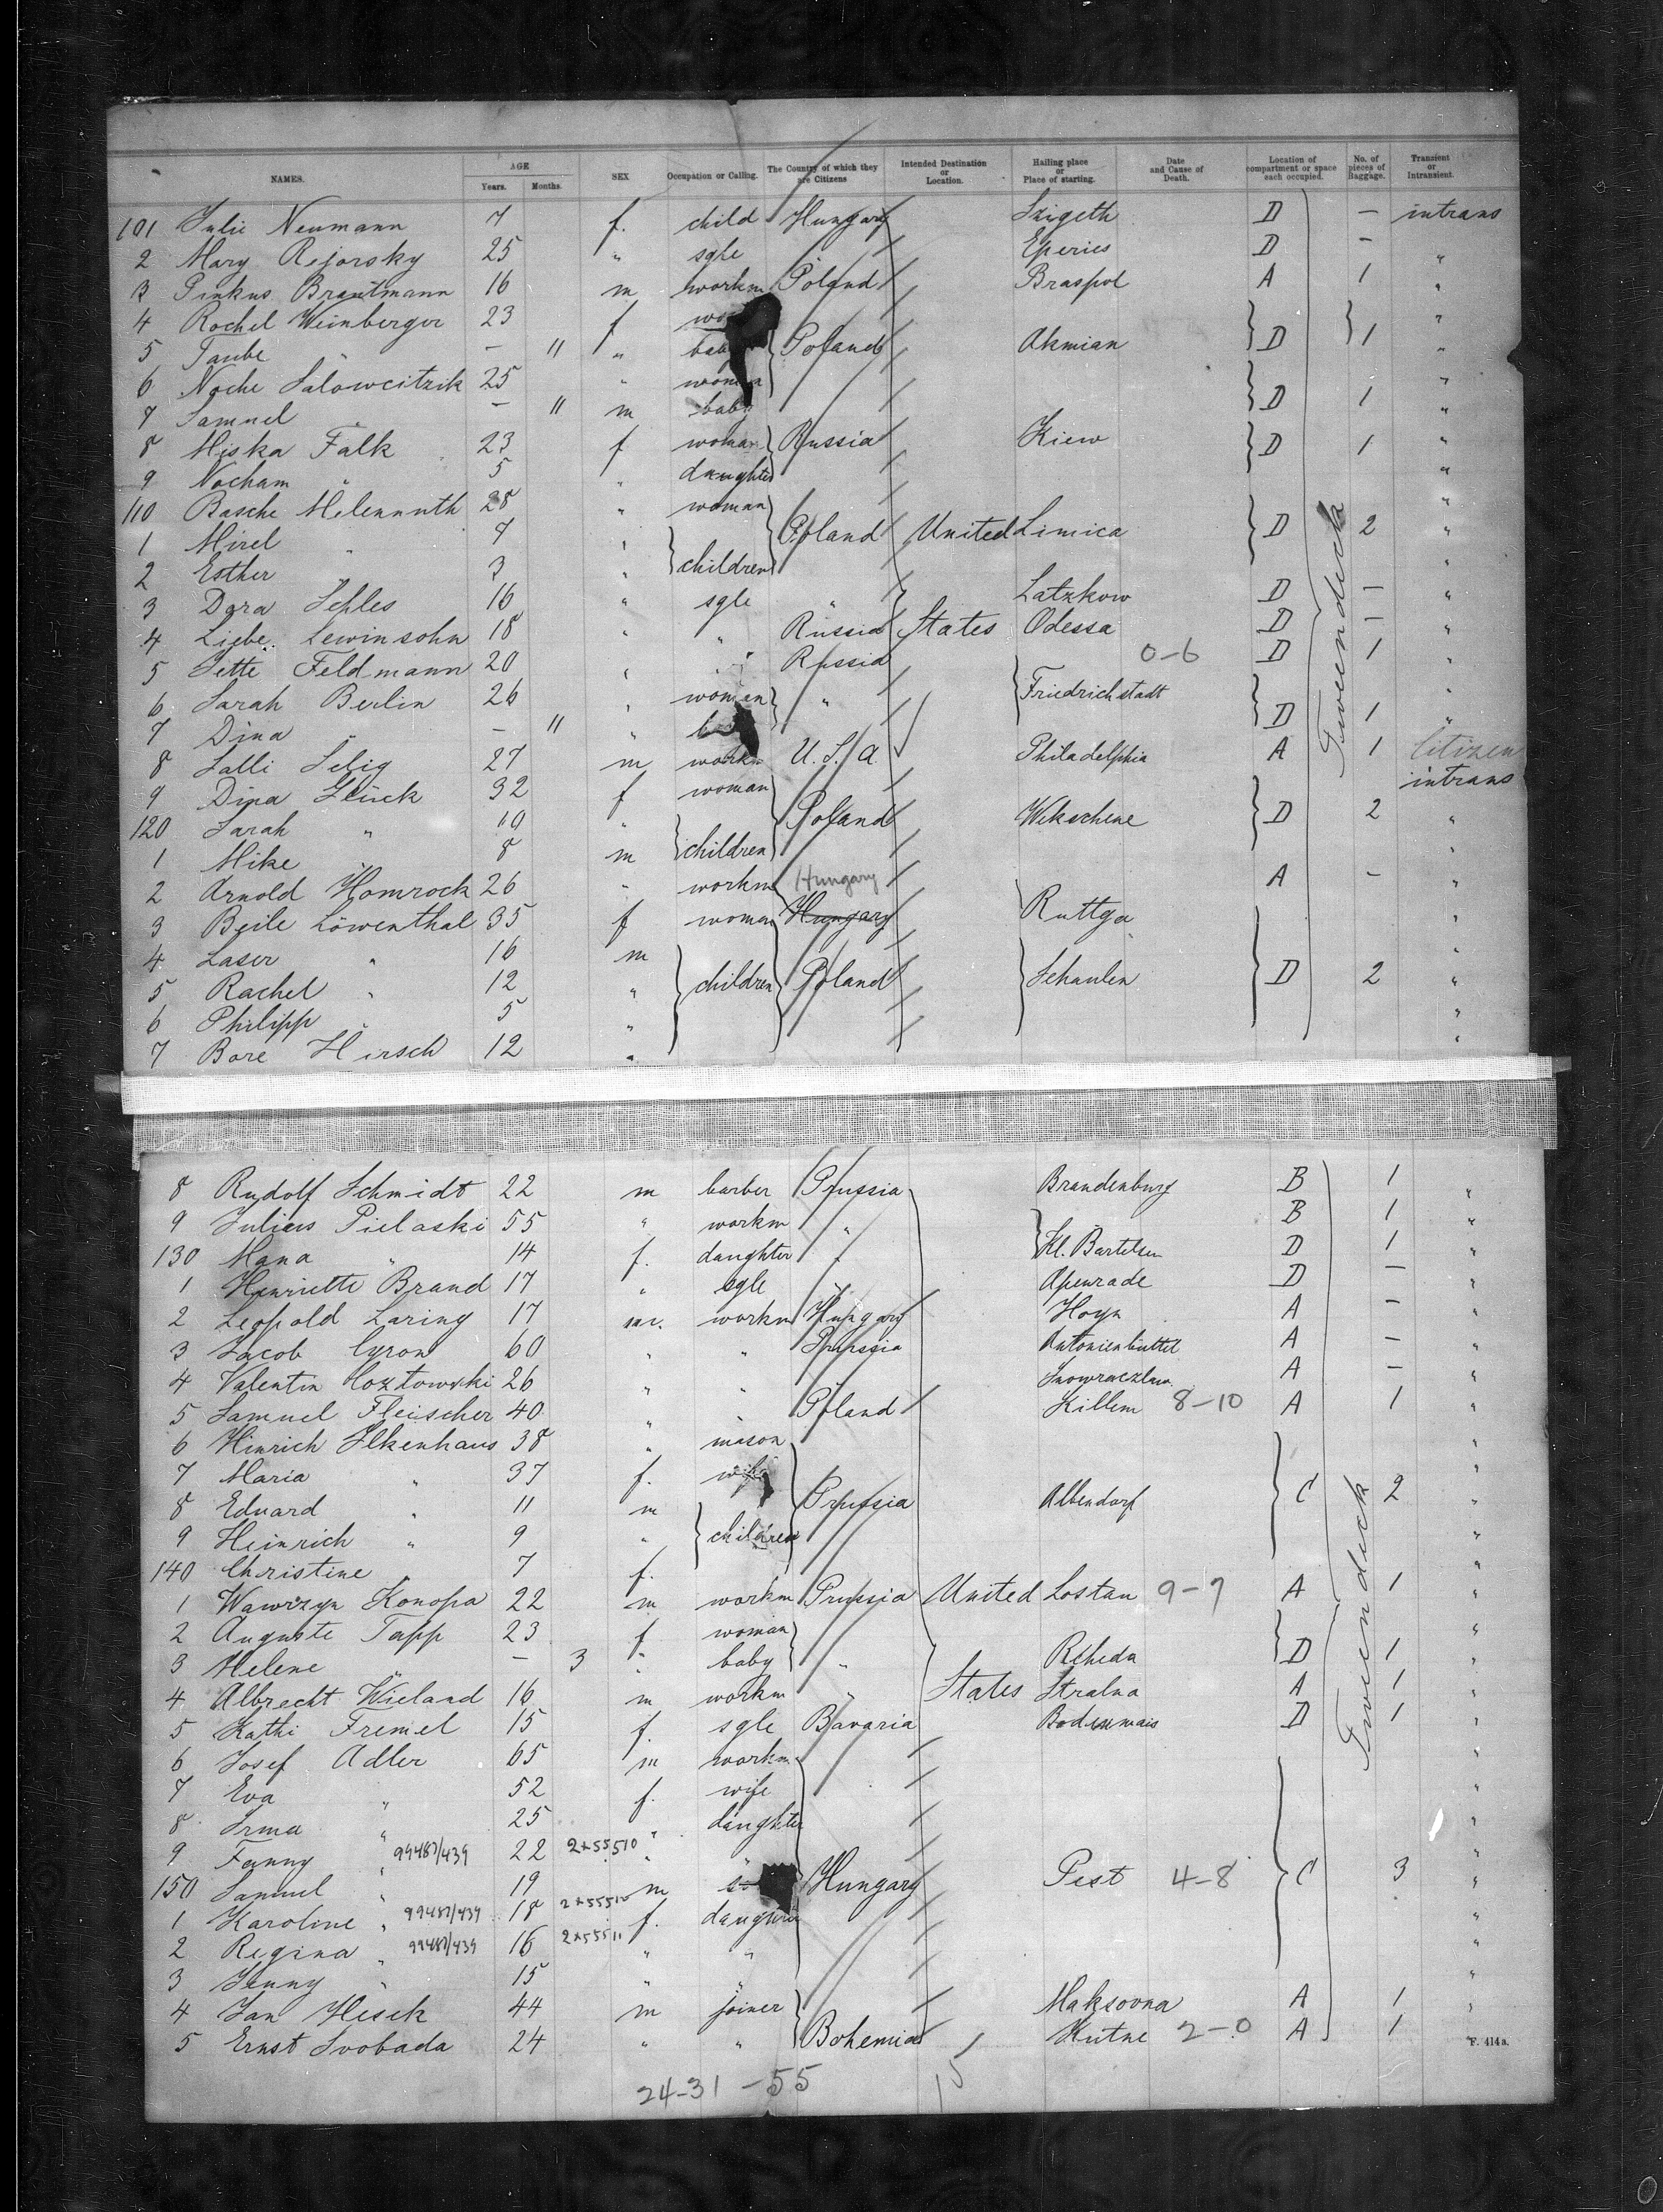 NAMES. AGE Years. Months. SEX Occupation or Calling. The Country of which they are Citizens Intended Destination or Location. Hailing place or Place of starting. Date and Cause of Death. Location of compartment or space each occupied. No. of pieces of Baggage. Transient or Intransient.
101 Julie Neumann 7 f. child Hungary Szigeth D — intrans
2 Mary Rejorsky 25 " sgle Eperies D — "
3 Pinkus Brautmann 16 m workm Poland Braspol A 1 "
4 Rochel Weinberger 23 f "
5 Taube " — 11 " baby Poland Akmian D 1 "
6 Noche Salowcitzik 25 " woman "
7 Samuel " — 11 m baby D 1 "
8 Miska Falk 23 f woman Russia Kiew D 1 "
9 Nocham " 5 " daughter "
110 Basche Melennuth 28 " woman "
1 Mirel " 7 " Poland United Limica D 2 "
2 Esther 3 " children "
3 Dora Seples 16 " sgle " Latzkow D — "
4 Liebe Lewinsohn 18 " " Russia States Odessa D — "
5 Jette Feldmann 20 " " Russia 0-6 D 1 "
6 Sarah Berlin 26 " woman " Friedrichstadt "
7 Dina — 11 " D 1 "
8 Salli Selig 27 m workm U.S.A. Philadelphia A 1 Citizen
9 Dina Glück 32 f woman intrans
120 Sarah " 10 " Poland Wekschene D 2 "
1 Mike " 8 m children "
2 Arnold Homrock 26 " workm Hungary A — "
3 Beile Löwenthal 35 f woman Hungary Ruttga "
4 Laser " 16 m "
5 Rachel " 12 " children Poland Schaulen D 2 "
6 Philipp " 5 " "
7 Bore Hirsch 12 " "
Tweendeck
8 Rudolf Schmidt 22 m barber Prussia Brandenburg B 1 "
9 Julius Pielaski 55 " workm " B 1 "
130 Mana " 14 f. daughter " Kl. Bartelsen D 1 "
1 Henriette Brand 17 " sgle " Apenrade D — "
2 Leopold Laring 17 m. workm Hungary Hoyn A — "
3 Jacob Cyron 60 " " Prussia Antonienhüttel A — "
4 Valentin Coztowski 26 " " A — "
5 Samuel Fleischer 40 " " Poland Killem 8-10 A 1 "
6 Hinrich Ilkenhaus 38 " mason "
7 Maria " 37 f. wife "
8 Eduard " 11 m Prussia Albendorf C 2 "
9 Heinrich " 9 " children "
140 Christine 7 f. "
1 Wawrzyn Konopa 22 m workm Prussia United Lostan 9-7 A 1 "
2 Auguste Tapp 23 f. woman "
3 Helene " — 3 " baby " Rsheda D 1 "
4 Albrecht Wieland 16 m workm " States Stralna A 1 "
5 Kathi Fremel 15 f. sgle Bavaria Bodenmais D 1 "
6 Josef Adler 65 m workm "
7 Eva " 52 f. wife "
8 Irma " 25 " daughter "
9 Fanny " 99487/439 22 2x55510 " " "
150 Samuel " 19 m Hungary Pest 4-8 C 3 "
1 Karoline " 99487/439 18 2x55510 f. daughter "
2 Regina " 99487/439 16 2x55510 " " "
3 Jenny " 15 " " "
4 Jan Hesek 44 m joiner Maksovna A 1 "
5 Ernst Svobada 24 " " Bohemia Kutne 2-0 A 1
Tweendeck
F. 414a.
24-31-55 15